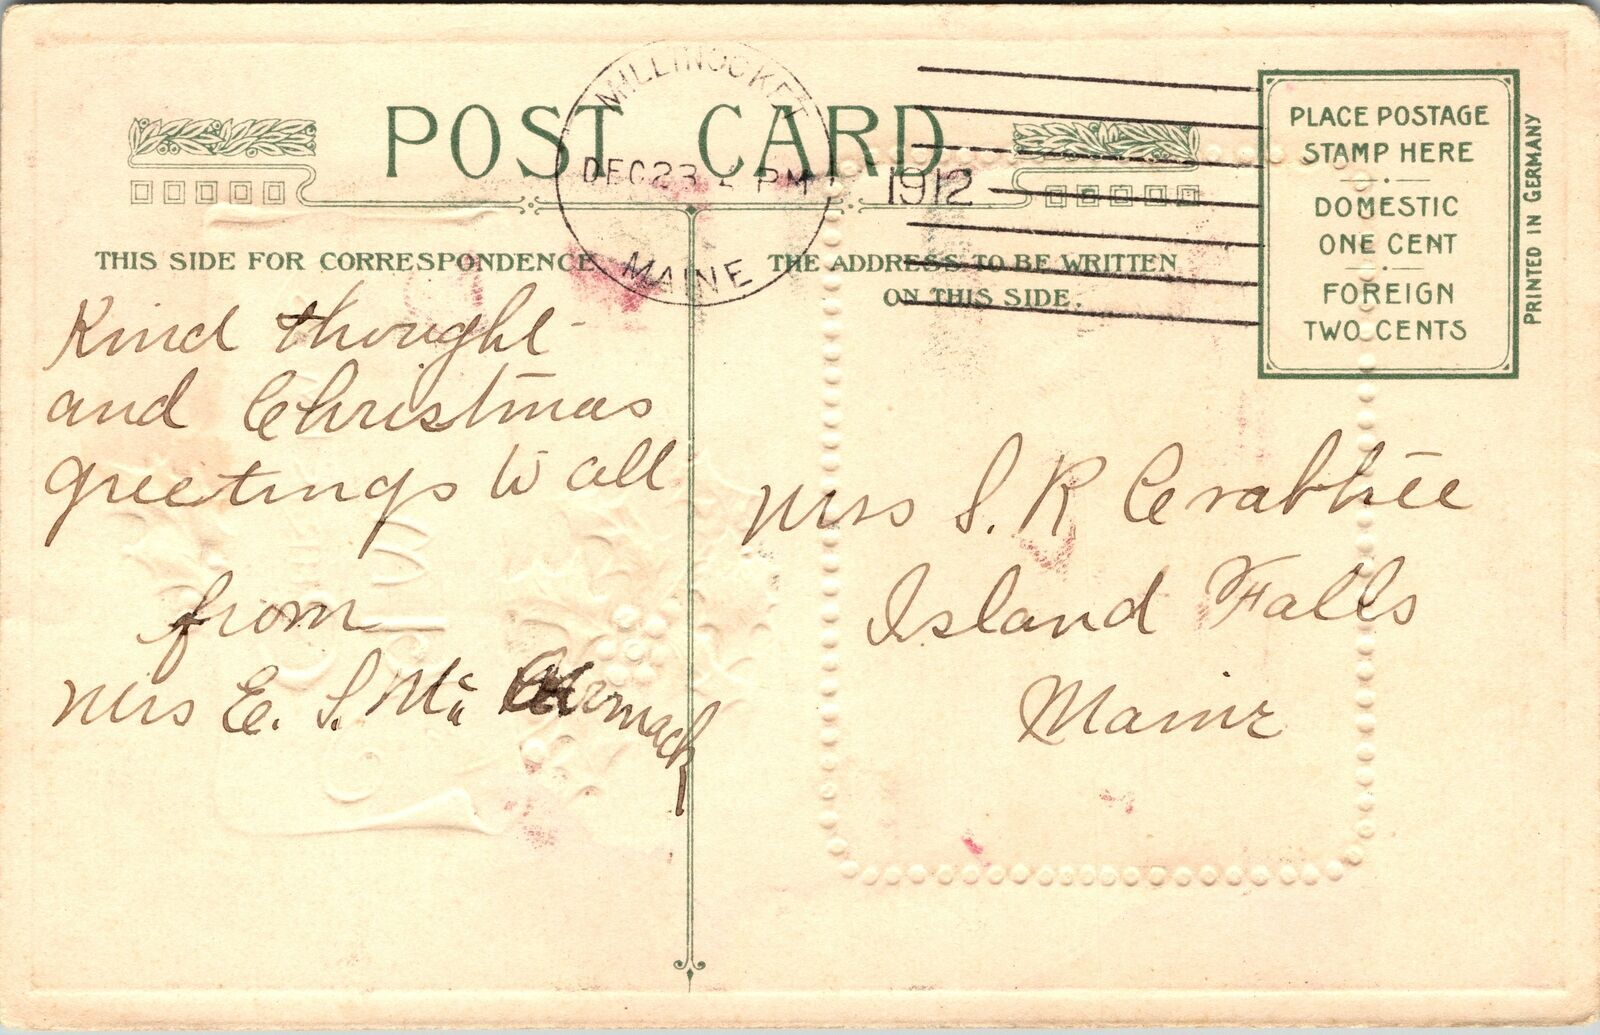 POST CARD
MILLINOCKET
DEC 23 PM
1912
MAINE
PLACE POSTAGE
STAMP HERE
DOMESTIC
ONE CENT
FOREIGN
TWO CENTS
PRINTED IN GERMANY
THIS SIDE FOR CORRESPONDENCE
THE ADDRESS TO BE WRITTEN
ON THIS SIDE.
Kind thought
and Christmas
greetings to all
from
Mrs E. S. Mc Cormack
Mrs S. R Crabtree
Island Falls
Maine